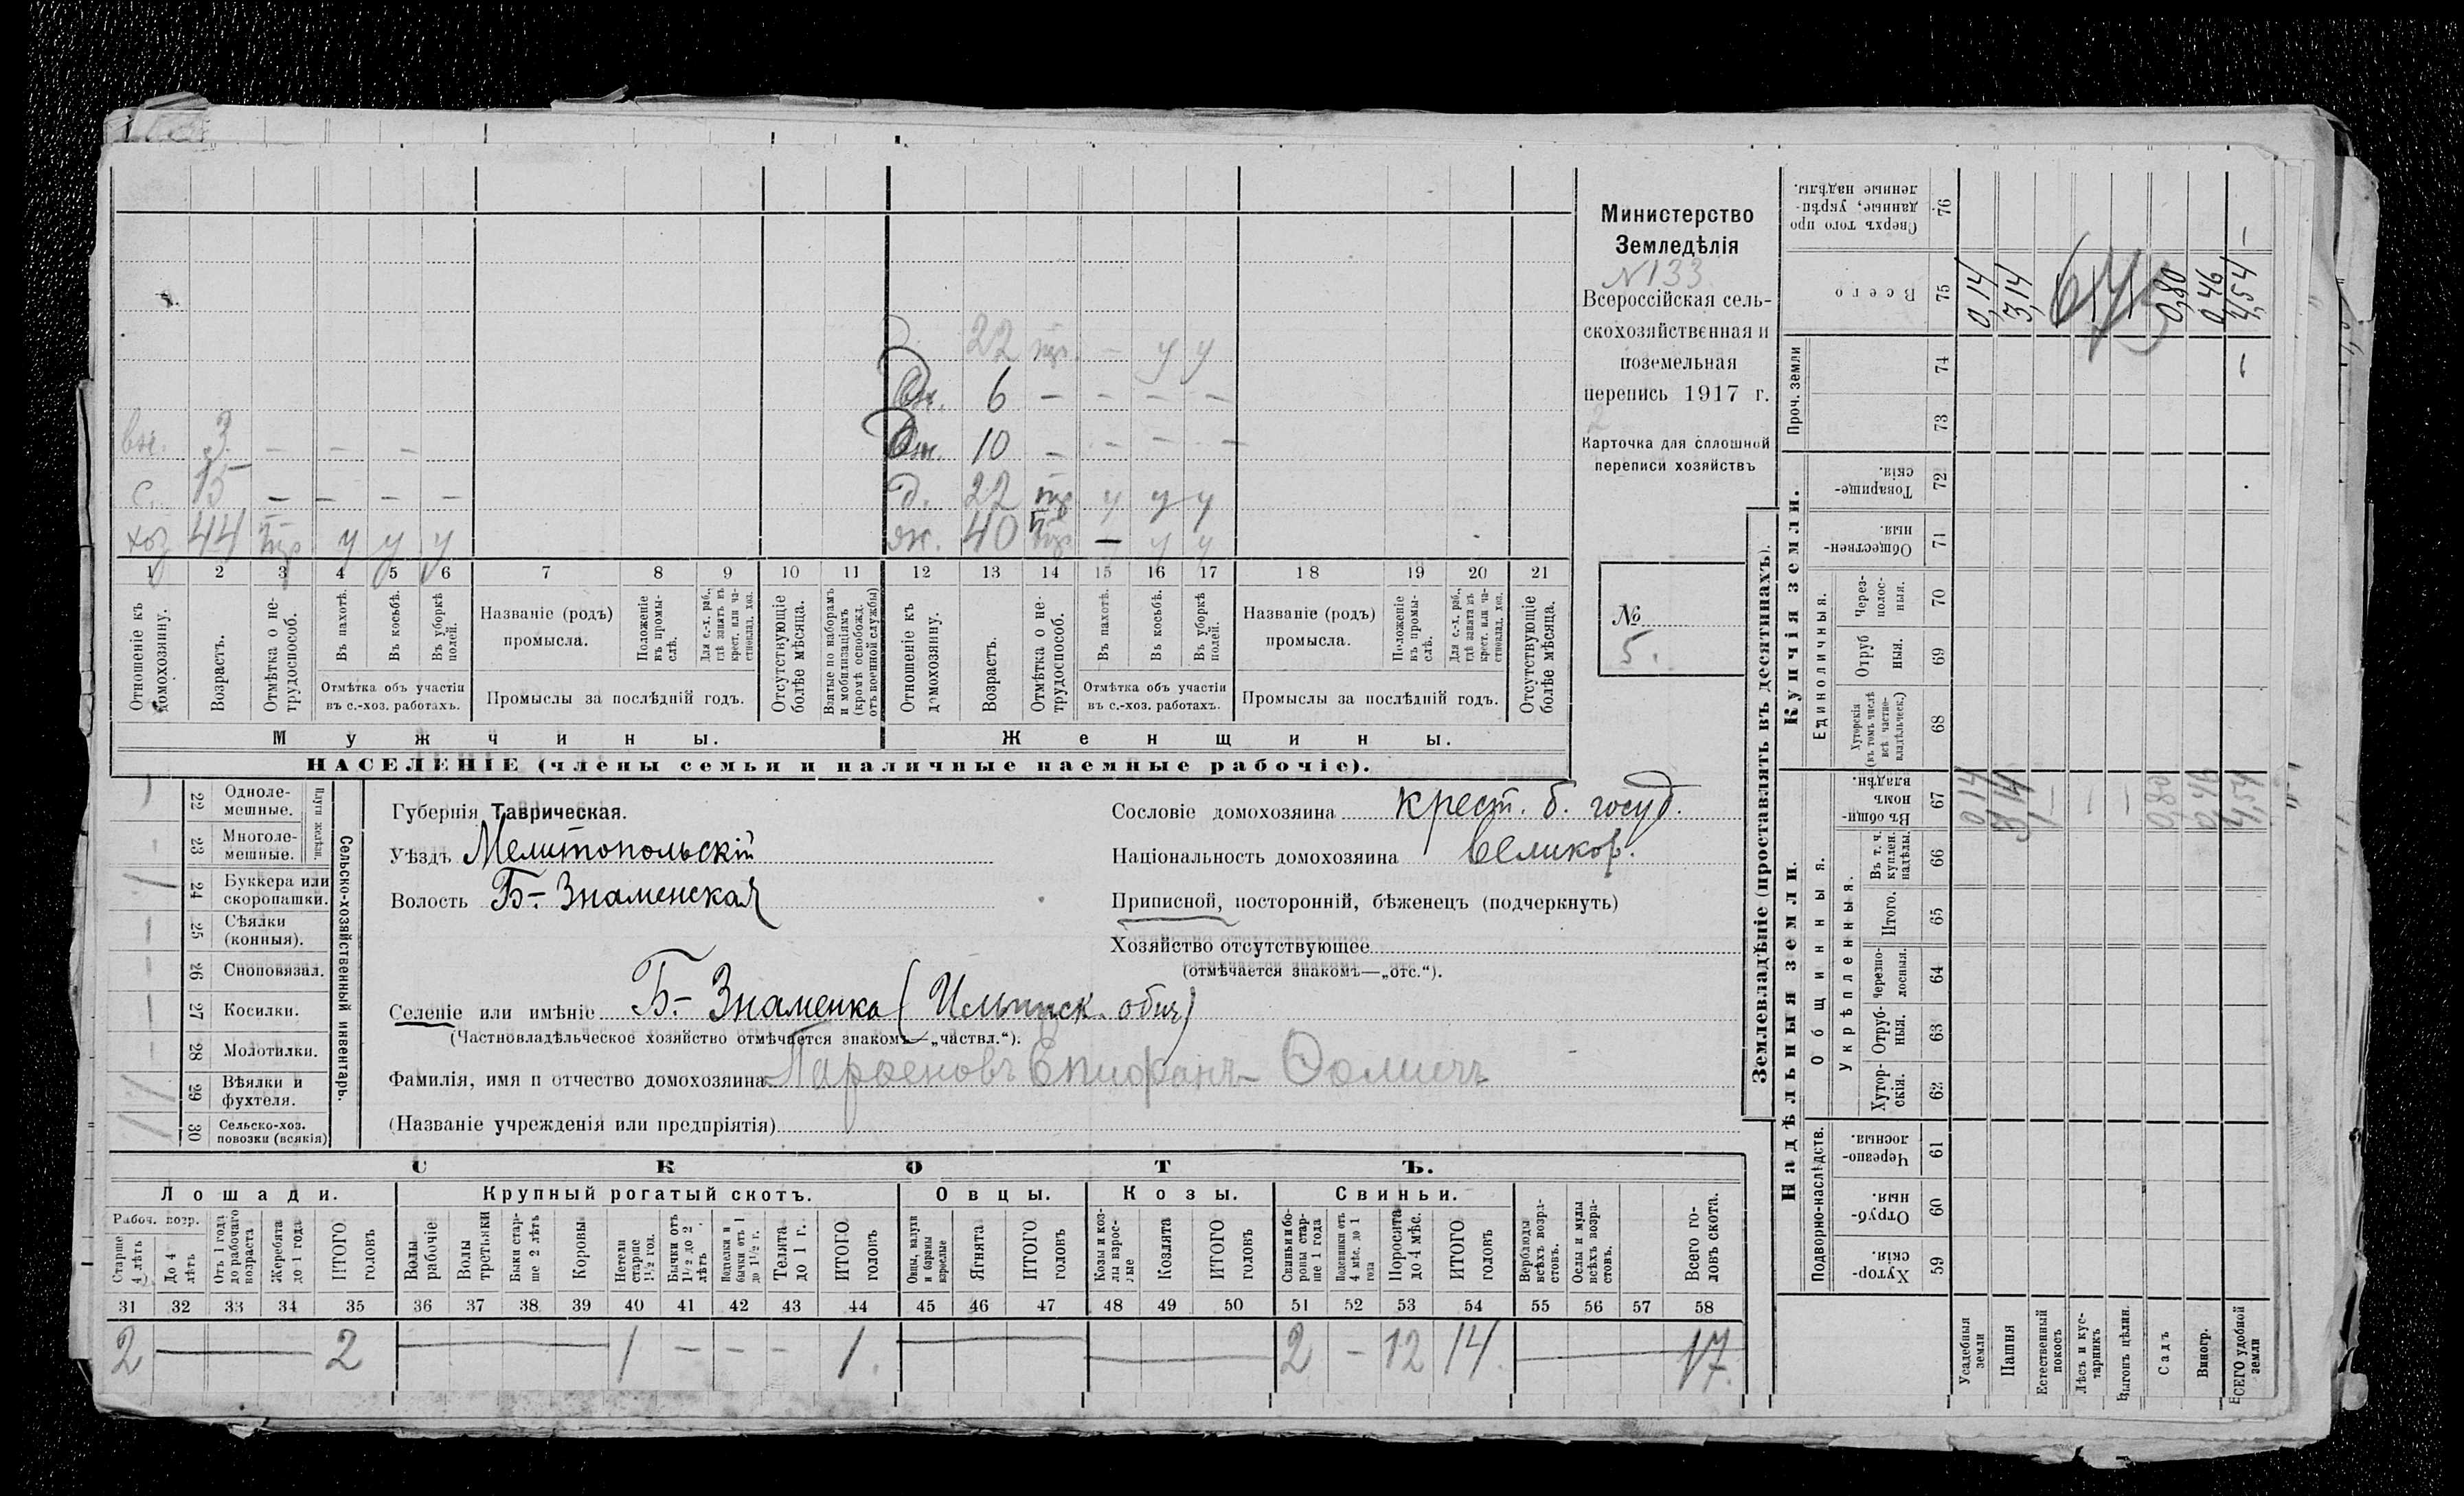 Министерство
Земледѣлія
N 133
Всероссійская сель-
скохозяйственная и
поземельная
перепись 1917 г.
Карточка для сплошной
переписи хозяйствъ
№
5.
22 – у у
вн. 6 – – – –
вн. 3 – – – вн. 10 – – – –
с. 15 – – – – д. 22 у у у
хоз 44 у у у ж. 40 – у у
1 2 3 4 5 6 7 8 9 10 11 12 13 14 15 16 17 18 19 20 21
Отношеніе къ домохозяину.
Возрастъ.
Отмѣтка о не-трудоспособ.
Въ пахотѣ.
Въ косьбѣ.
Въ уборкѣ полей.
Отмѣтка объ участіи въ с.-хоз. работахъ.
Названіе (родъ) промысла.
Положеніе въ промы-слѣ.
Для с.-х. раб., гдѣ занятъ въ крест. или ча-стновлад. хоз.
Промыслы за послѣдній годъ.
Отсутствующіе болѣе мѣсяца.
Взятые по наборамъ и мобилизаціямъ (кромѣ освобожд. отъ военной службы)
Отношеніе къ домохозяину.
Возрастъ.
Отмѣтка о не-трудоспособ.
Въ пахотѣ.
Въ косьбѣ.
Въ уборкѣ полей.
Отмѣтка объ участіи въ с.-хоз. работахъ.
Названіе (родъ) промысла.
Положеніе въ промы-слѣ.
Для с.-х. раб., гдѣ занята въ крест. или ча-стновлад. хоз.
Промыслы за послѣдній годъ.
Отсутствующіе болѣе мѣсяца.
Мужчины. Женщины.
НАСЕЛЕНІЕ (члены семьи и наличные наемные рабочіе).
Сельско-хозяйственный инвентарь.
Плуги желѣзн.
22 Одноле-мешные.
23 Многоле-мешные.
24 Буккера или скоропашки. 1
25 Сѣялки (конныя).
26 Сноповязал.
27 Косилки.
28 Молотилки.
29 Вѣялки и фухтеля.
30 Сельско-хоз. повозки (всякія)
Губернія Таврическая.
Уѣздъ Мелитопольскій
Волость Б-Знаменская
Сословіе домохозяина крест. б. госуд.
Національность домохозяина великор.
Приписной, посторонній, бѣженецъ (подчеркнуть)
Хозяйство отсутствующее
(отмѣчается знакомъ—„отс.“).
Селеніе или имѣніе Б-Знаменка (
(Частновладѣльческое хозяйство отмѣчается знакомъ—„частвл.“).
Фамилія, имя и отчество домохозяина Парѳеновъ Епифанъ Ѳомичъ
(Названіе учрежденія или предпріятія)
СКОТЪ.
Лошади. Крупный рогатый скотъ. Овцы. Козы. Свиньи.
Рабоч. возр.
Старше 4 лѣтъ
До 4 лѣтъ
Отъ 1 года до рабочаго возраста
Жеребята до 1 года
ИТОГО головъ
Волы рабочіе
Волы третьяки
Быки стар-ше 2 лѣтъ
Коровы
Нетели старше 1½ год.
Бычки отъ 1½ до 2 лѣтъ
Подтелки и бычки отъ 1 до 1½ г.
Телята до 1 г.
ИТОГО головъ
Овцы, валухи и бараны взрослые
Ягнята
ИТОГО головъ
Козы и коз-лы взрос-лые
Козлята
ИТОГО головъ
Свиньи и бо-ровы стар-ше 1 года
Подсвинки отъ 4 мѣс. до 1 года
Поросята до 4 мѣс.
ИТОГО головъ
Верблюды всѣхъ возра-стовъ.
Ослы и мулы всѣхъ возра-стовъ.
Всего го-ловъ скота.
31 32 33 34 35 36 37 38 39 40 41 42 43 44 45 46 47 48 49 50 51 52 53 54 55 56 57 58
2 — 2 — 1 – – – 1. — — 2 – 12 14. — 17.
Землевладѣніе (проставлять въ десятинахъ).
Надѣльныя земли. Купчія земли. Проч. земли
Подворно-наслѣдств. Общинныя. Единоличныя.
Укрѣпленныя.
59 Хутор-скія.
60 Отруб-ныя.
61 Черезпо-лосныя.
62 Хутор-скія.
63 Отруб-ныя.
64 Черезпо-лосныя.
65 Итого.
66 Въ т. ч. куплен. надѣлы.
67 Въ общи-номъ владѣн.
68 Хуторскія (въ томъ числѣ всѣ частно-владѣльческ.)
69 Отруб ныя.
70 Через-полос-ныя.
71 Обществен-ныя.
72 Товарище-скія.
73
74
75 Всего
76 Сверхъ того про данные, укрѣп-ленные надѣлы.
Усадебныя земли 0,14 0,14
Пашня 3,14 3,14
Естественный покосъ –
Лѣсъ и кус-тарникъ –
Выгонъ цѣлин. –
Садъ 0,80 0,80
Виногр. 0,46 0,46
ВСЕГО удобной земли 4,54 – 4,54 –